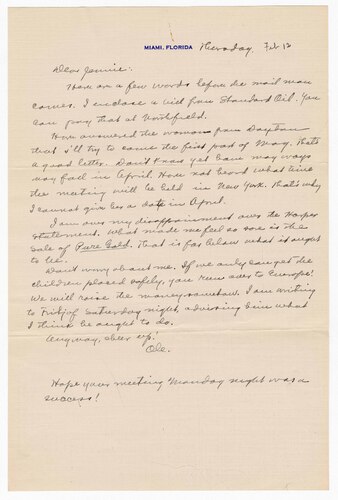 MIAMI, FLORIDA Thursday, Feb 12
Dear Jennie:
Here are a few words before the mail man
comes. I enclose a bill from Standard Oil. You
can pay that at Northfield.
Have answered the woman from Dayton
that I'll try to come the first part of May. That's
a good letter. Don't know yet how my ways
may fall in April. Have not heard what time
the meeting will be held in New York. That's why
I cannot give her a date in April.
I am over my disappointment over the Harper
statement. What made me feel so sore is the
sale of Pure Gold. That is far below what it ought
to be.
Don't worry about me. If we only can get the
children placed safely, you run over to Europe!
We will raise the money somehow. I am writing
to Fritjof Saturday night, advising him what
I think he ought to do.
Anyway, cheer up!
Ole.
Hope your meeting Monday night was a
success!